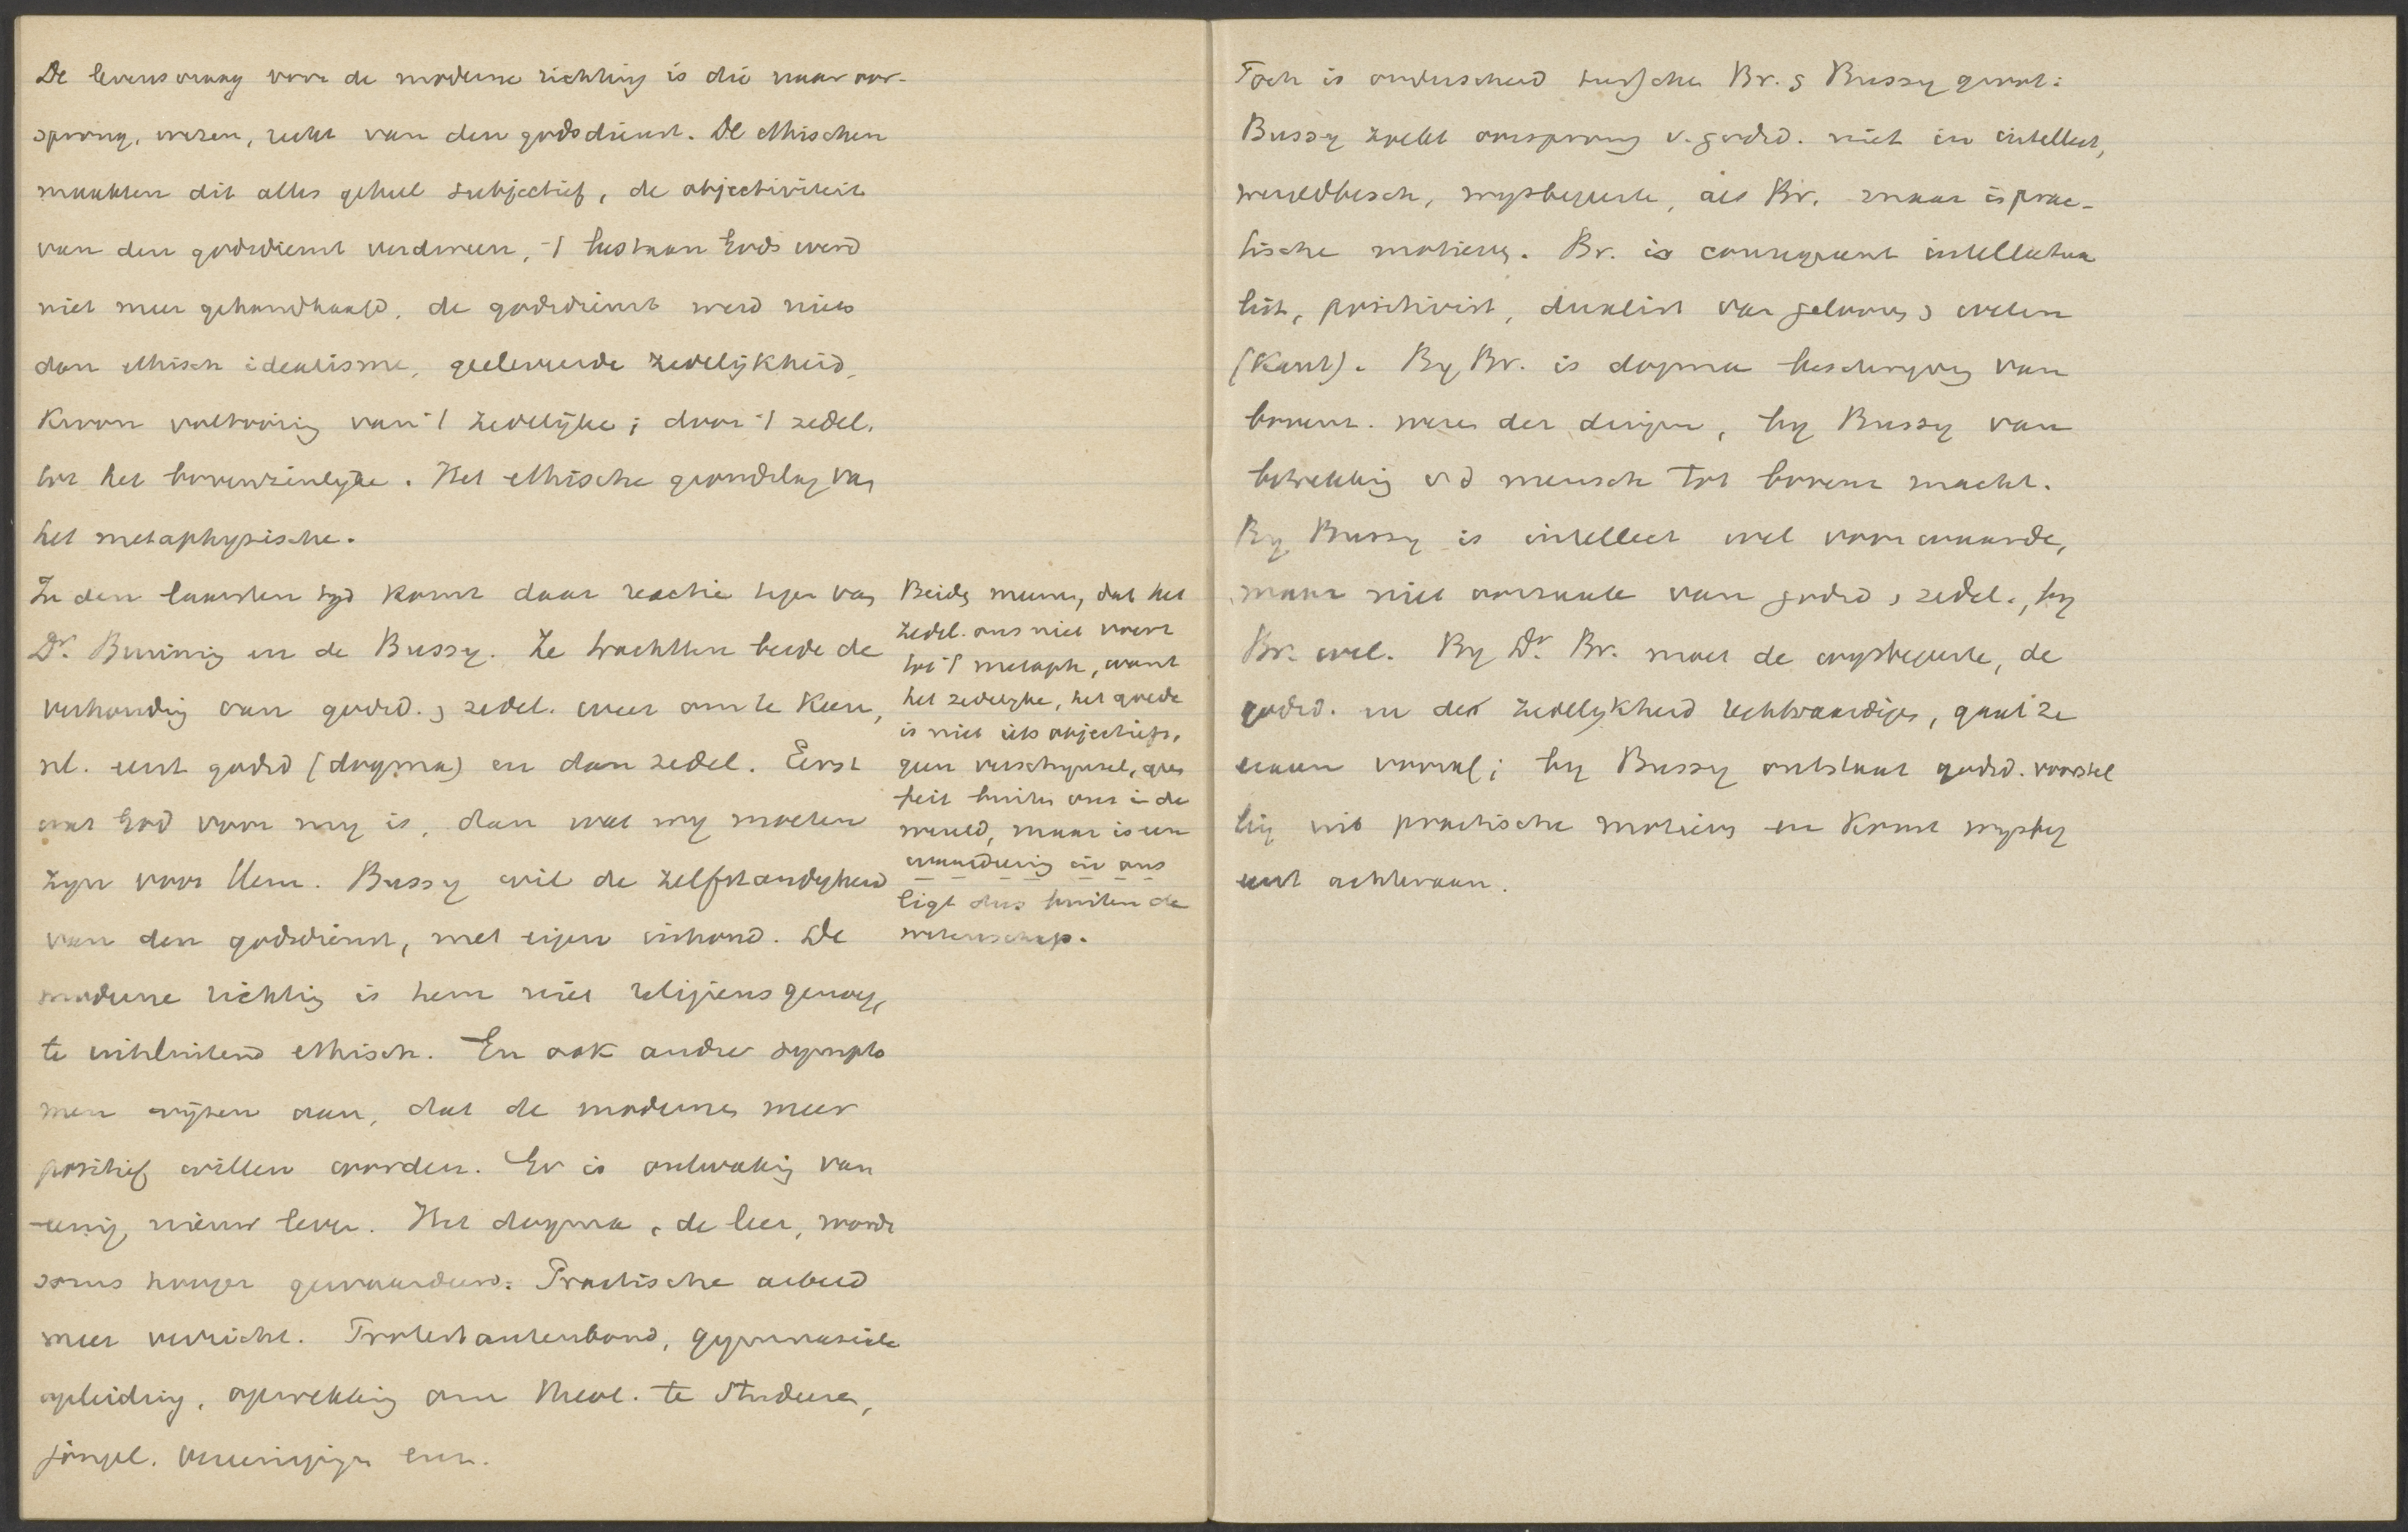 De levensvraag voor de moderne richting is die naar oor-
sprong, wezen, recht van den godsdienst. De ethischen
maakten dit alles geheel subjectief, de objectiviteit
van den godsdienst verdween, 't bestaan Gods werd
niet meer gehandhaafd, de godsdienst werd niets
dan ethisch idealisme, geeleveerde zedelijkheid,
kroon voltooiing van 't zedelijke; door 't zedel.
tot het bovenzinlijke. Het ethische grondslag van
het metaphysische.
In den laatsten tijd komt daar reactie tegen van
Dr. Bruining en de Bussy. Ze trachtten beide de
verhouding van godsd. & zedel. weer om te keeren,
nl. eerst godsd (dogma) en dan zedel. Eerst
wat God voor my is, dan wat wy moeten
zyn voor Hem. Bussy wil de zelfstandigheid
van den godsdienst, met eigen inhoud. De
moderne richting is hem niet religieus genoeg,
te uitsluitend ethisch. En ook andre sympto
men wijzen aan, dat de modernen meer
positief willen worden. Er is ontwaking van
eenig nieuw leven. Het dogma, de leer, wordt
soms hooger gewaardeerd. Practische arbeid
meer verricht. Protestantenbond, gymnasiale
opleiding, opwekking om theol. te studeeren,
jongel. vereenigingen enz.
Beiden meenen, dat het
zedel. ons niet voert
tot 't metaph, want
het zedelyke, het goede
is niet iets objectiefs,
geen verschynsel, geen
feit buiten ons in de
wereld, maar is een
waardeering in ons
ligt dus buiten de
wetenschap.
Toch is onderscheid tusschen Br. & Bussy groot:
Bussy zoekt oorsprong v. godsd. niet in intellect,
wereldbesch, wysbegeerte, als Br. maar in prac-
tische motieven. Br. is consequent intellectua
list, positivist, dualist van gelooven & weten
(Kant). By Br. is dogma beschryving van
bovenz. wezen der dingen, by Bussy van
betrekking v d mensch tot bovenz macht.
By Bussy is intellect wel voorwaarde,
maar niet oorzaak van godsd & zedel., by
Br. wel. By Dr. Br. moet de wysbegeerte, de
godsd. en de zedelykheid rechtvaardigen, gaat ze
eraan vooraf; by Bussy ontstaat godsd. voorstel
ling uit practische motieven en komt wysbeg
eerst achteraan.